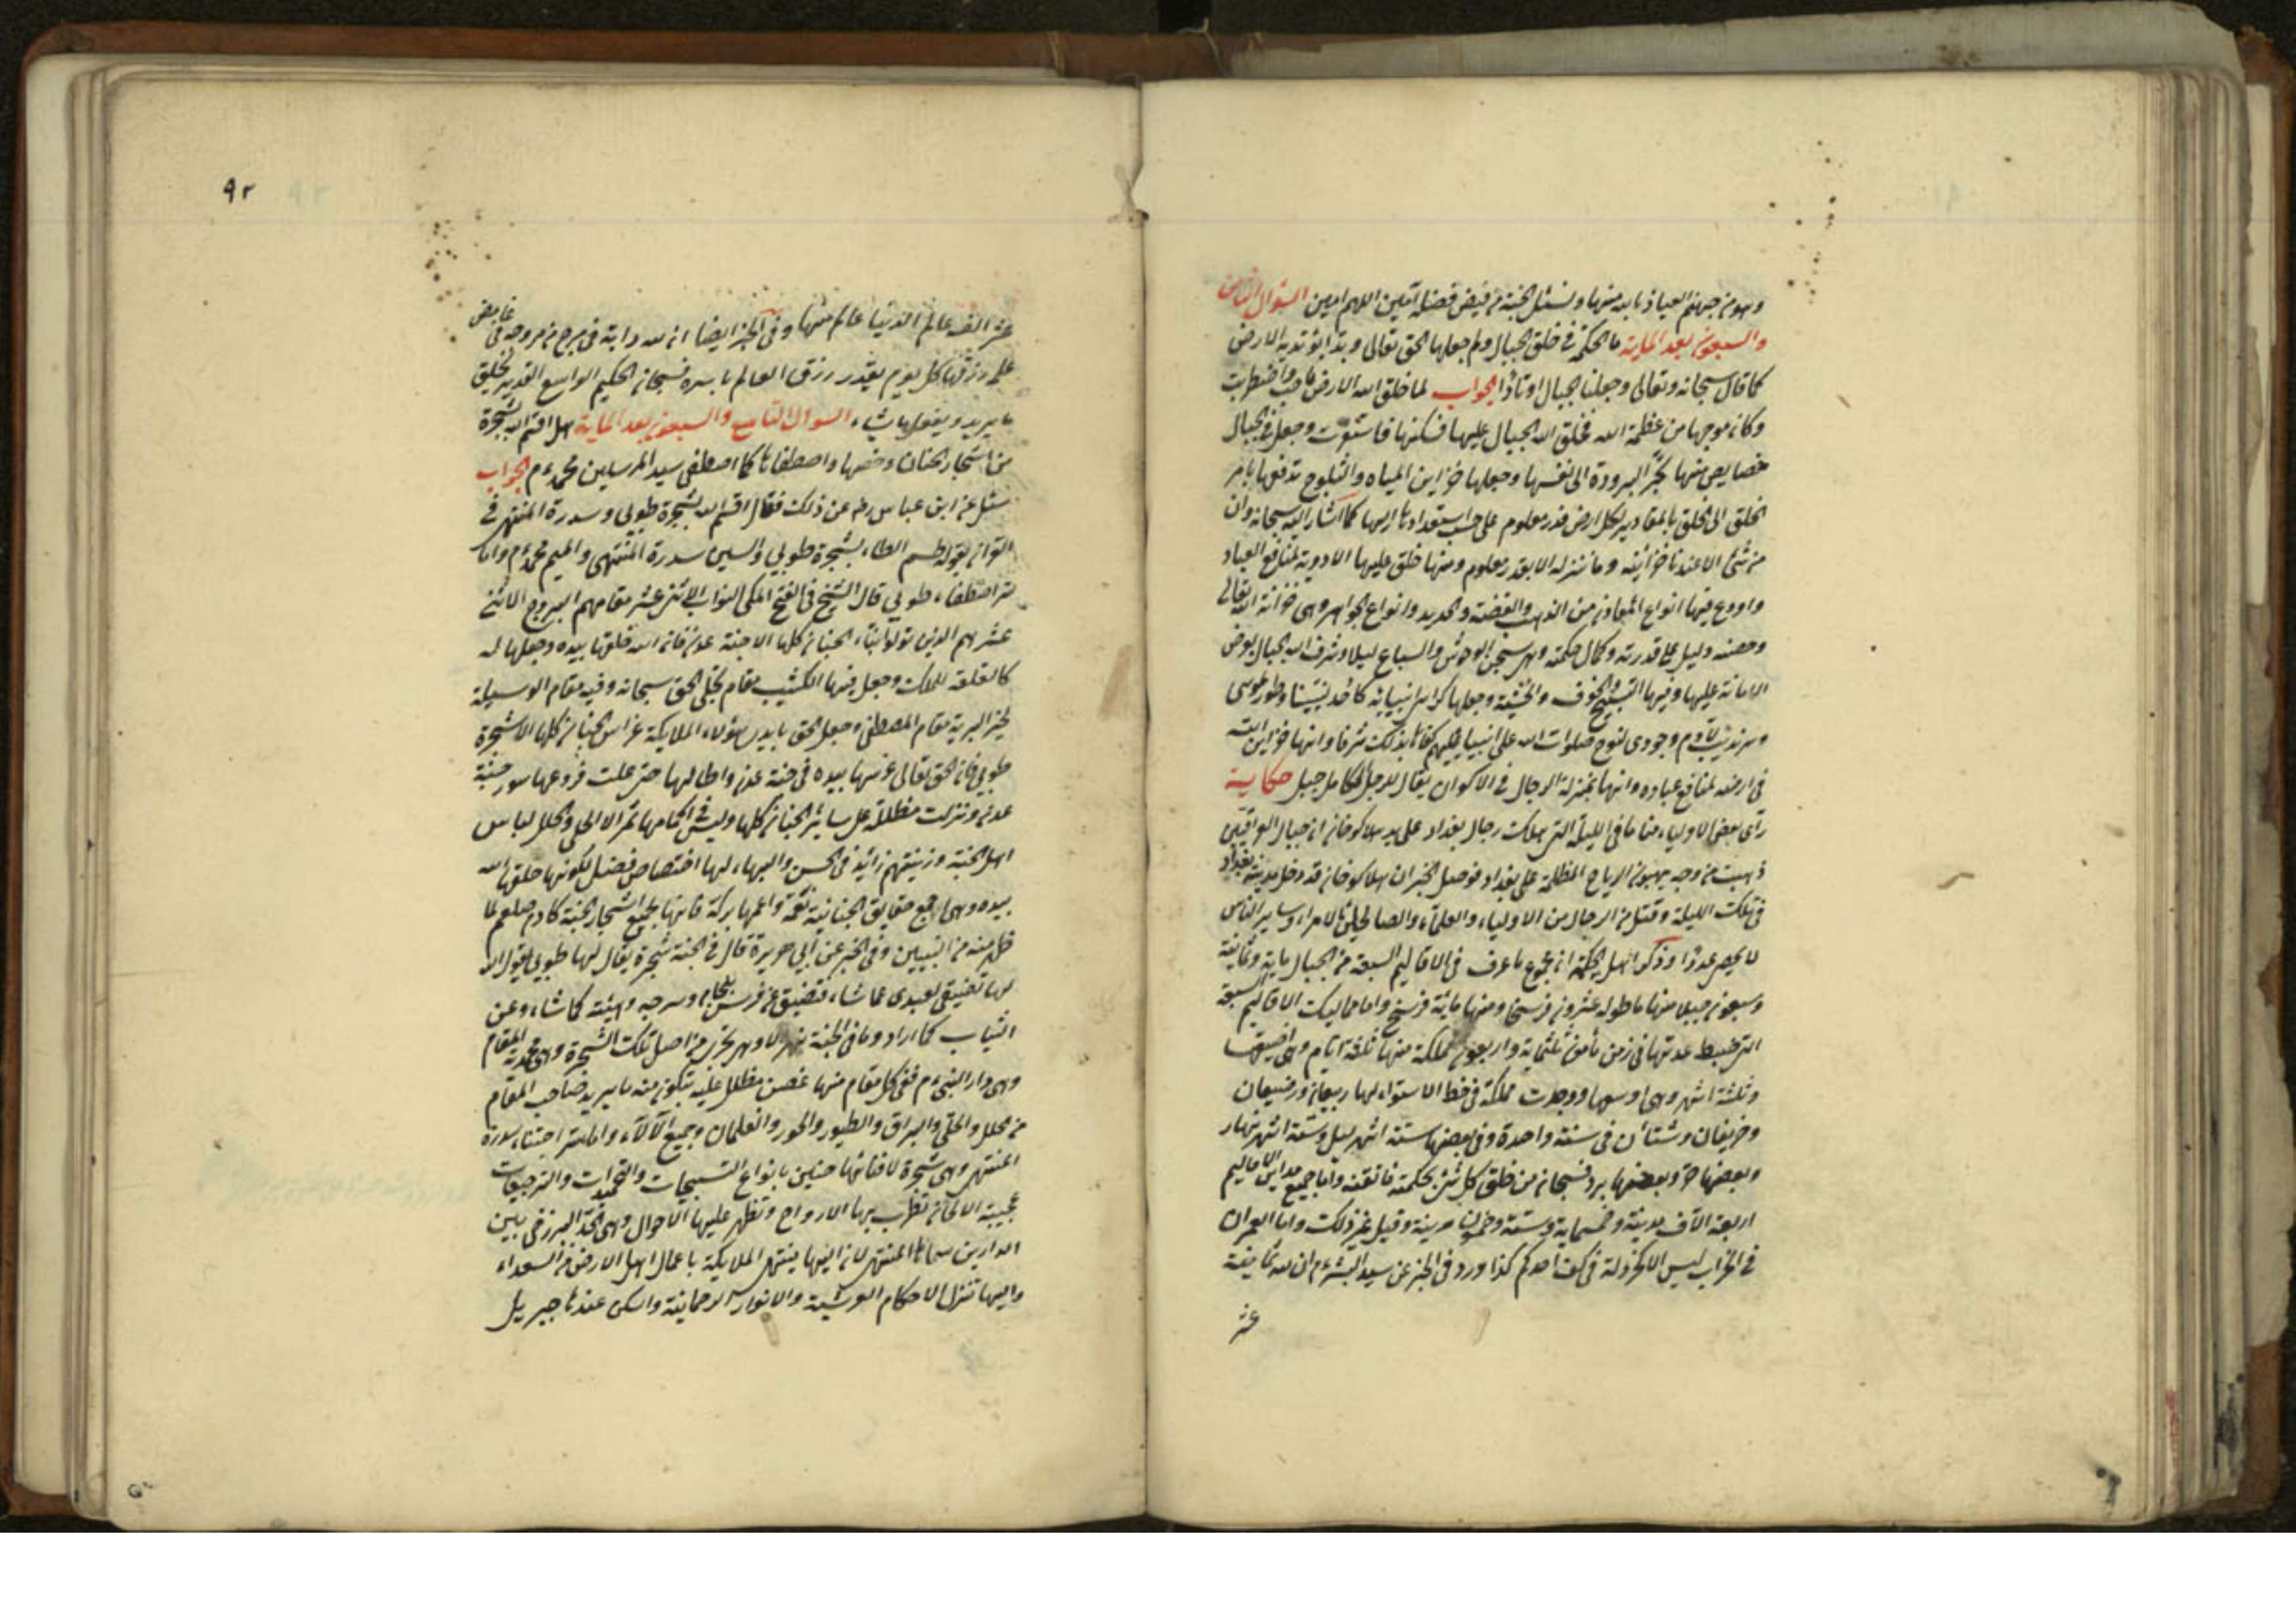 وهو من جهنم العياذ بالله منها ونسئل الجنة من فيض فضله آمين اللهم امين السؤال الثامن
والسبعون بعد الماية ما الحكمة في خلق الجبال ولم جعلها الحق تعالى وتدا يؤتد به الارض
كما قال سبحانه وتعالى وجعلنا الجبال اوتادا الجواب لما خلق الله الارض واضطربت
وكان موجها من عظمة الله فخلق الله الجبال عليها فسكنها فاستقرت وجعل في الجبال
خصايص منها تجر البرودة الى نفسها وجعلها خزاين المياه والثلوج تدفعها بامر
الخلق الى الخلق بالمقادير لكل ارض قدر معلوم على حسب استعدادها اليها كما اشار اليه سبحانه وان
من شئ الا عندنا خزائنه وما ننزله الا بقدر معلوم ومنها خلق عليها الادوية لمنافع العباد
واودع فيها انواع المعادن من الذهب والفضة والحديد وانواع الجواهر وهي خزانة الله تعالى
وحصنه دليل على قدرته وكمال حكمته وهي سجن الوحوش والسباع ليلا وشرف الله الجبال بعرض
الامانة عليها وفيها التسبيح والخوف والخشية وجعلها كراسي انبيائه كاحد نبينا وطور موسى
وسرنديب لآدم وجودى لنوح صلوات الله على انبيائه كفاها بذلك شرفا وانها خزاين الله
في ارضه لمنافع عباده وانها بمنزلة الرجال في الاكوان يقال للرجل الكامل جبل حكاية
رأى بعض الاولياء مناما في الليلة التي هلكت رجال بغداد على يد هلاكو خان ان جبال العراقين
ذهبت من وجه بهبوب الرياح المظلمة على بغداد فوصل الخبر ان هلاكو خان قد دخل مدينة بغداد
في تلك الليلة وقتل من الرجال من الاولياء والعلماء والصالحين والامراء وساير الناس
لا يحصر عددا وذكر اهل الحكمة ان مجموع ما عرف في الاقاليم السبعة من الجبال ماية وثمانية
وسبعون جبلا منها ما طوله عشرون فرسخا ومنها مائة فرسخ واما ممالك الاقاليم السبعة
التي ضبط عدتها في زمن مأمون ثلثماية واربعون مملكة منها ثلثة ايام وهي اضيقها
وثلثة اشهر وهي اوسعها ووجدت مملكة في خط الاستواء لها ربيعان وصيفان
وخريفان وشتاآن في سنة واحدة وفي بعضها ستة اشهر ليل وستة اشهر نهار
وبعضها حر وبعضها برد فسبحان من خلق كل شئ بحكمته فاتقنه واما جميع مداين الاقاليم
اربعة آلاف مدينة وخمسماية وستة وخمسون مدينة وقيل غير ذلك واما العمران
في الخراب ليس الا كخردلة في كف احدكم كذا ورد في الخبر عن سيد البشر م ان لله ثمانية
عشر
٩٢
عشر الف عالم الدنيا عالم منها وفي الخبر ايضا ان لله دابة في مرج من مروجه في غامض
علمه رزقها كل يوم بقدر رزق العالم باسره فسبحان الحكيم الواسع القدير يخلق
ما يريد ويفعل ما يشاء السوال التاسع والسبعون بعد الماية هل اقسم الله بشجرة
من اشجار الجنان وخصها واصطفاها كما اصطفى سيد المرسلين محمد م الجواب
سئل عن ابن عباس رض عن ذلك فقال اقسم الله بشجرة طوبى وسدرة المنتهى في
القران بقوله طسم الطاء بشجرة طوبى والسين سدرة المنتهى والميم محمد م واما
سر اصطفاء طوبى قال الشيخ في الفتح المكي النواب الاثنى عشر مقامهم البروج الاثنى
عشر هم الذين تولوا بناء الجنان كلها الا جنة عدن فان الله خلقها بيده وجعلها له
كالقلعة للملك وجعل فيها الكثيب مقام تجلى الحق سبحانه وفيه مقام الوسيلة
لخير البرية مقام المصطفى وجعل الحق بايدي هؤلاء الملايكة غراس الجنان كلها الا شجرة
طوبى فان الحق تعالى غرسها بيده في جنة عدن واطالها حتى علت فروعها سور جنة
عدن ونزلت مظللة على سائر الجنان كلها وليس في اكمامها ثمر الا الحلى والحلل لباس
اهل الجنة وزينتهم زائد في الحسن والبهاء لها اختصاص فضل لكونها خلقها الله
بيده وهي اجمع حقايق الجنانية نعمة واعمها بركة فانها لجميع اشجار الجنة كادم صلعم لما
ظهر منه من النبيين وفي الخبر عن ابي هريرة قال في الجنة شجرة يقال لها طوبى يقول الله
لها تفتقي لعبدى عما شاء فتفتق عن فرس بلجامه وسرجه وهيئته كما شاء وعن
الثياب كما اراد وما في الجنة نهر الا وهو يجرى من اصل تلك الشجرة وهي محمدية المقام
وهي دار النبي م ففي كل مقام منها غصن مظلل عليه يتكون منه ما يريد صاحب المقام
من حلل والحلى والبراق والطيور والحور والغلمان وجميع الآلاء واما سر اجتباء سدرة
المنتهى وهي شجرة لافنانها حنين بانواع التسبيحات والتحميدات والترجيعات
عجيبة الالحان تطرب بها الارواح وتظهر عليها الاحوال وهي الحد البرزخى بين
الدارين سماها المنتهى لان اليها ينتهى الملايكة باعمال اهل الارض من السعداء
واليها تنزل الاحكام العرشية والانوار الرحمانية واسكن عندها جبريل